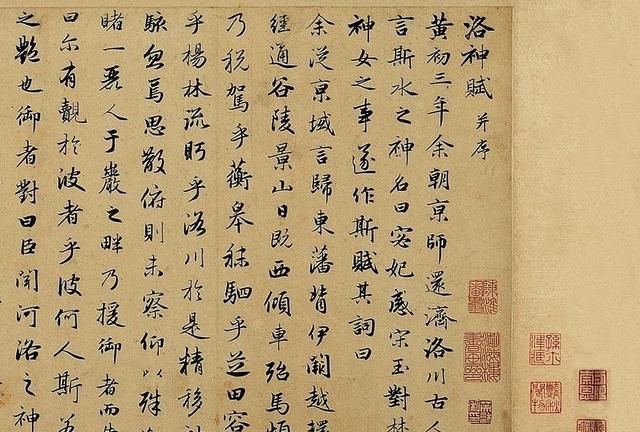 洛神賦 并序
黃初三年余朝京師還濟洛川古人
言斯水之神名曰宓妃感宋玉對
神女之事遂作斯賦其詞曰
余從京域言歸東藩背伊闕越轘
經通谷陵景山日既西傾車殆馬煩
乃稅駕乎蘅皋秣駟乎芝田容
乎楊林流眄乎洛川於是精移神
駭忽焉思散俯則未察仰以殊
睹一麗人于巖之畔乃援御者而告
曰尔有覿於彼者乎彼何人斯若
之艷也御者對曰臣聞河洛之神